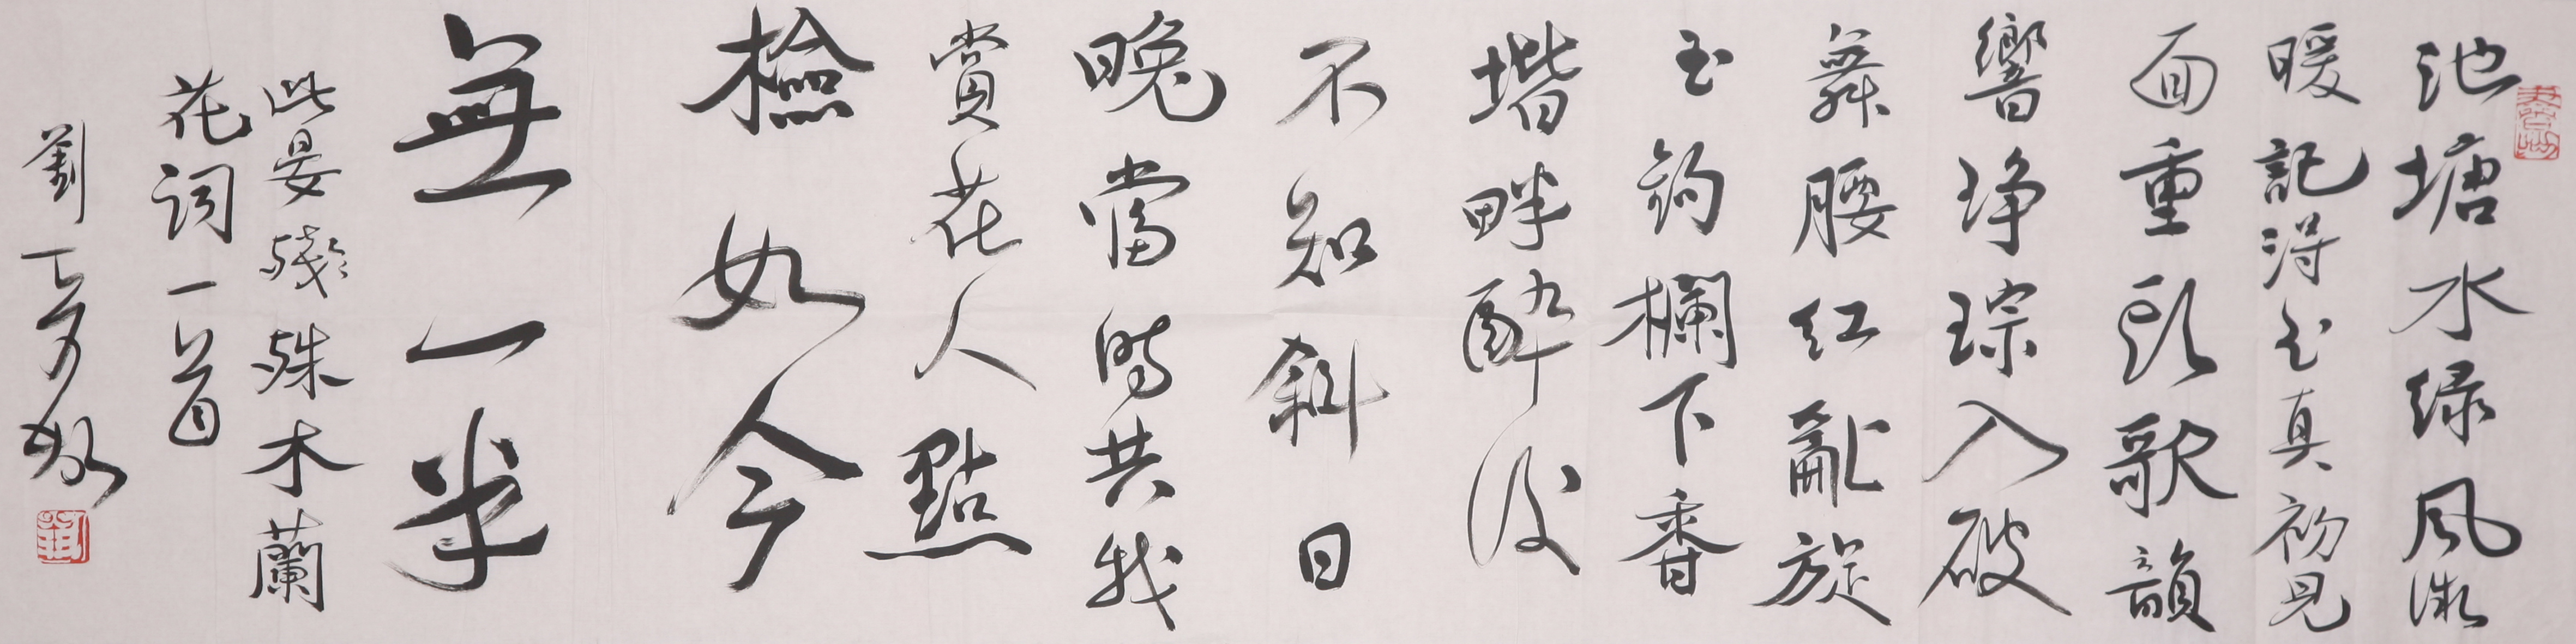 池塘水绿风微
暖記得玉真初見
面重頭歌韻
響琤琮入破
舞腰红亂旋
玉鈎欄下香
堦畔醉後
不知斜日
晚當時共我
賞花人點
檢如今
無一半
此晏殘殊木蘭
花词一首
劉